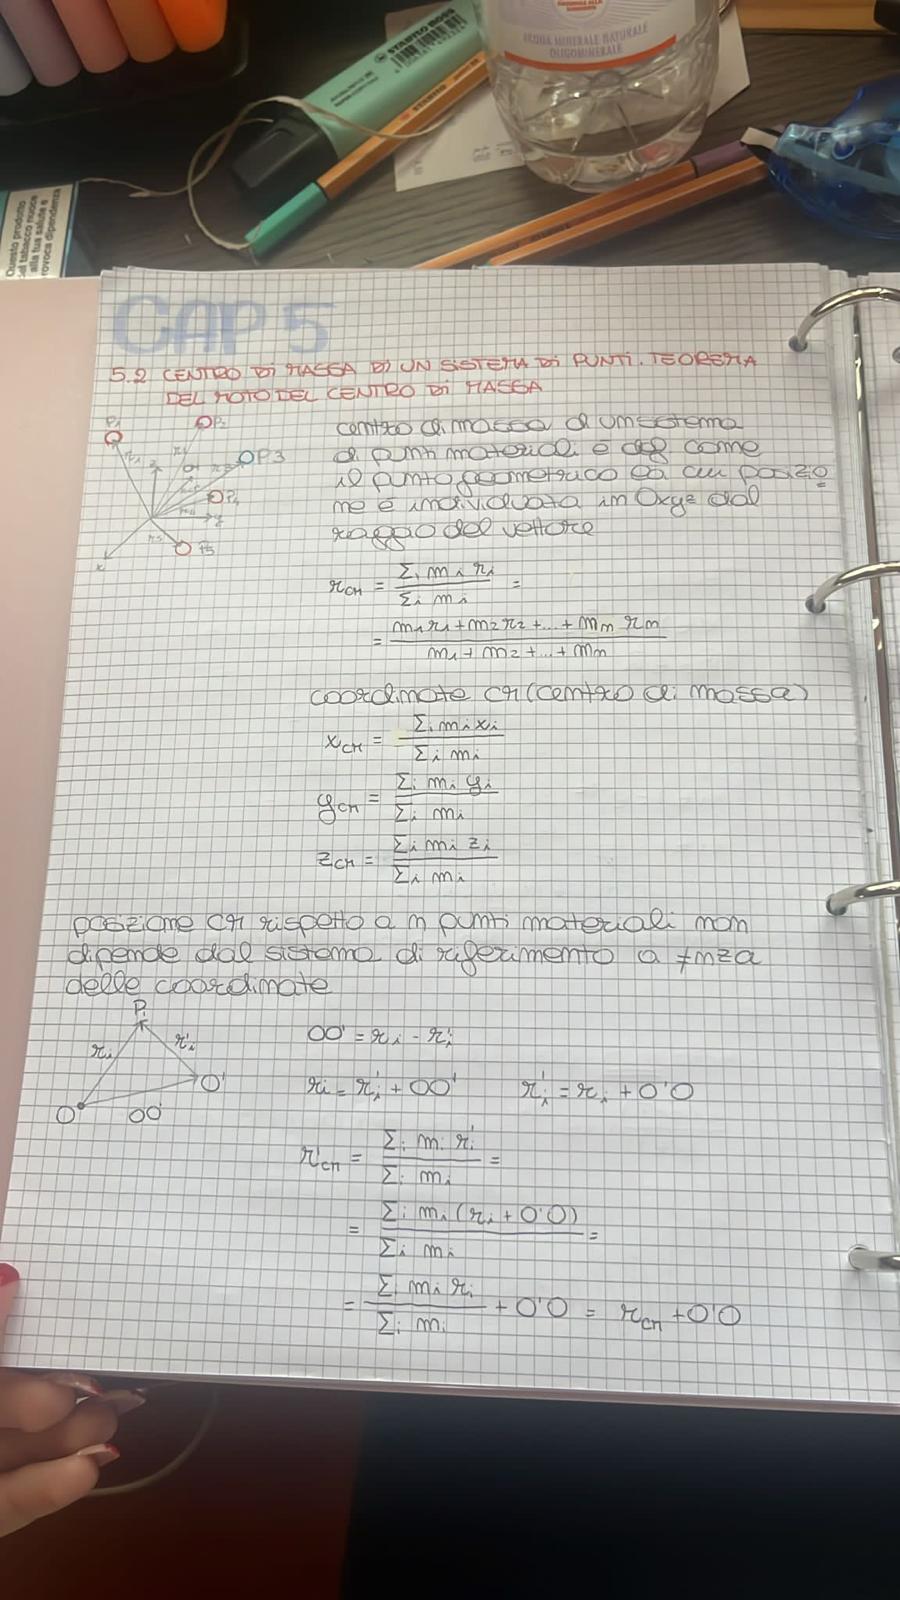 STABILO BOSS
ACQUA MINERALE NATURALE
OLIGOMINERALE
Questo prodotto
del tabacco nuoce
alla tua salute e
provoca dipendenza
CAP 5
5.2 CENTRO DI MASSA DI UN SISTEMA DI PUNTI. TEOREMA
DEL MOTO DEL CENTRO DI MASSA
P1
P2
P3
P4
P5
z
y
x
centro di massa di un sistema
di punti materiali è def come
il punto geometrico la cui posizio
ne è individuata in Oxyz dal
raggio del vettore
r_CM = Σi mi ri / Σi mi =
= m1r1 + m2r2 + ... + mn rn / m1 + m2 + ... + mn
coordinate CM (centro di massa)
x_CM = Σi mi xi / Σi mi
y_CM = Σi mi yi / Σi mi
z_CM = Σi mi zi / Σi mi
posizione CM rispetto a n punti materiali non
dipende dal sistema di riferimento a ≠nza
delle coordinate
Pi
ri
r'i
O
O'
OO'
OO' = ri - r'i
ri = r'i + OO' r'i = ri + O'O
r'CM = Σi mi r'i / Σi mi =
= Σi mi (ri + O'O) / Σi mi =
= Σi mi ri / Σi mi + O'O = r_CM + O'O